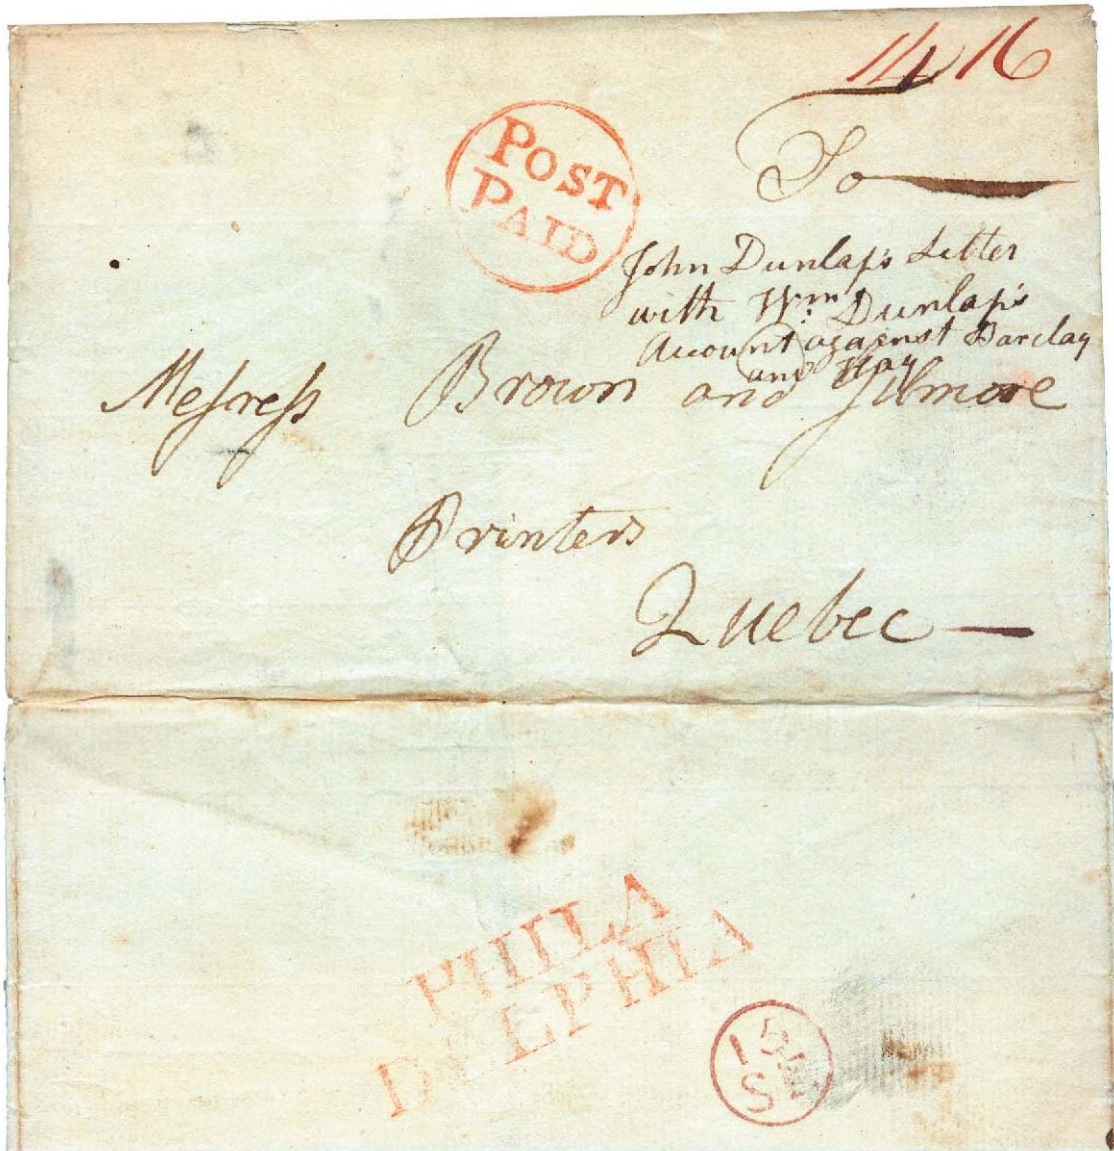 1N 16
POST
PAID
To
John Dunlap's Letter
with Wm. Dunlap's
Account against Barclay
and Hay
Meſsreſs Brown and Gilmore
Printers
Quebec
PHILA
DELPHIA
15
S